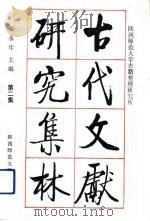 陕西师范大学古籍整理研究所
古代文獻
研究集林
永年 主编
第二集
陕西师范大